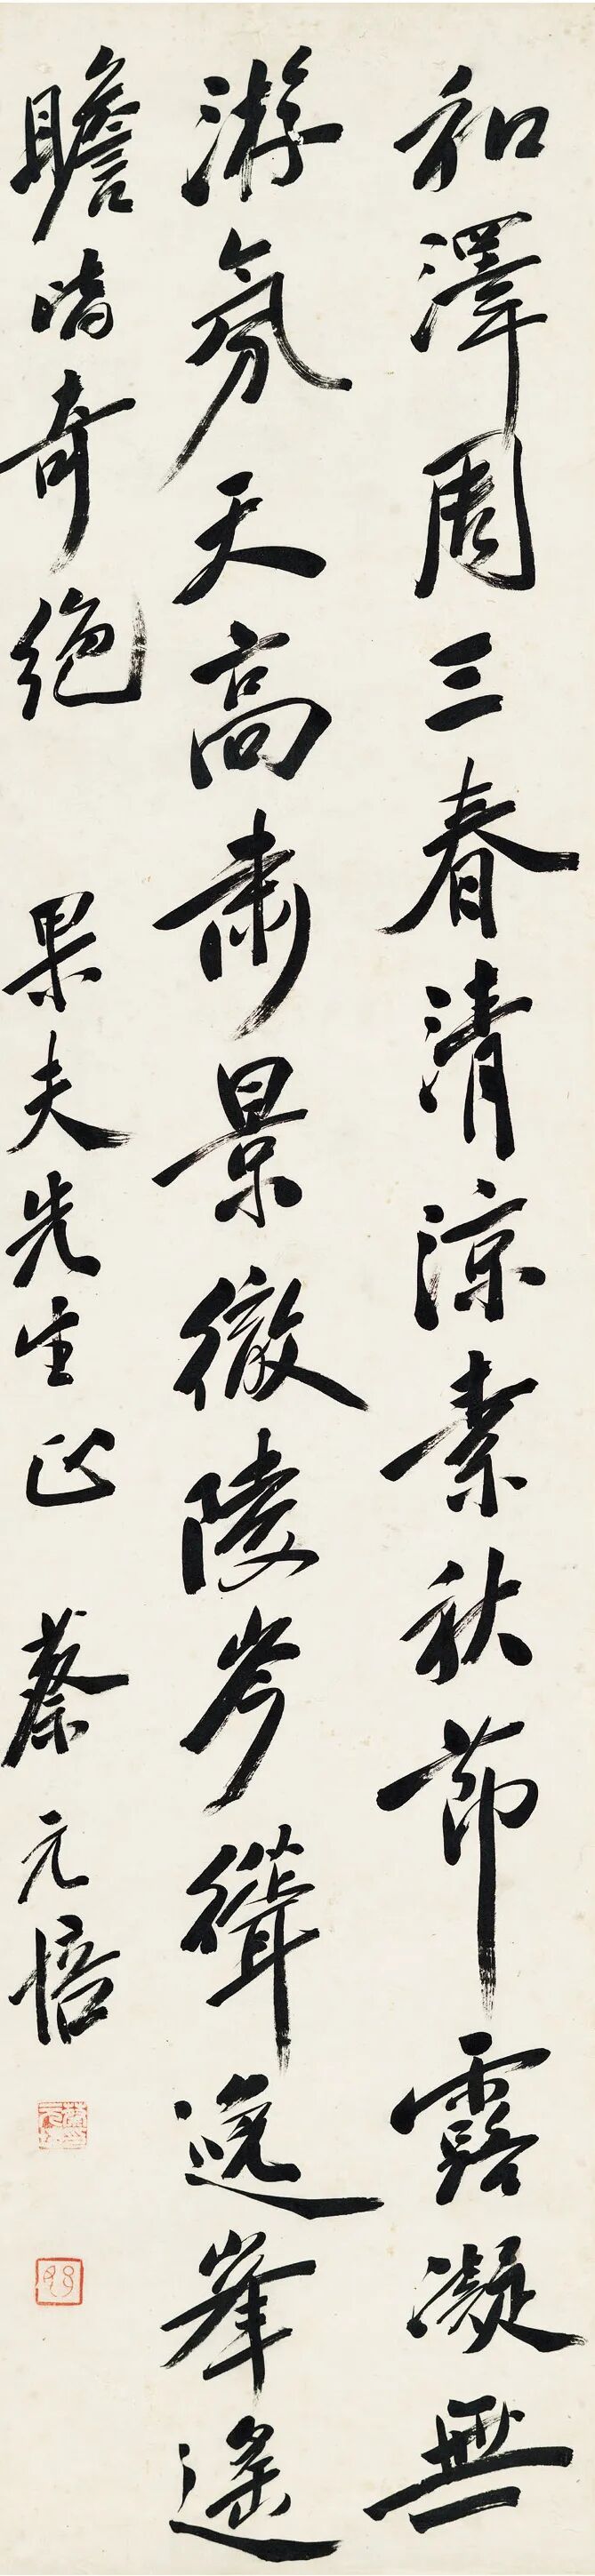 和澤周三春清涼素秋節露凝無
游氛天高肅景徹陵岑聳逸峯遙
瞻皆奇絕 果夫先生正 蔡元培